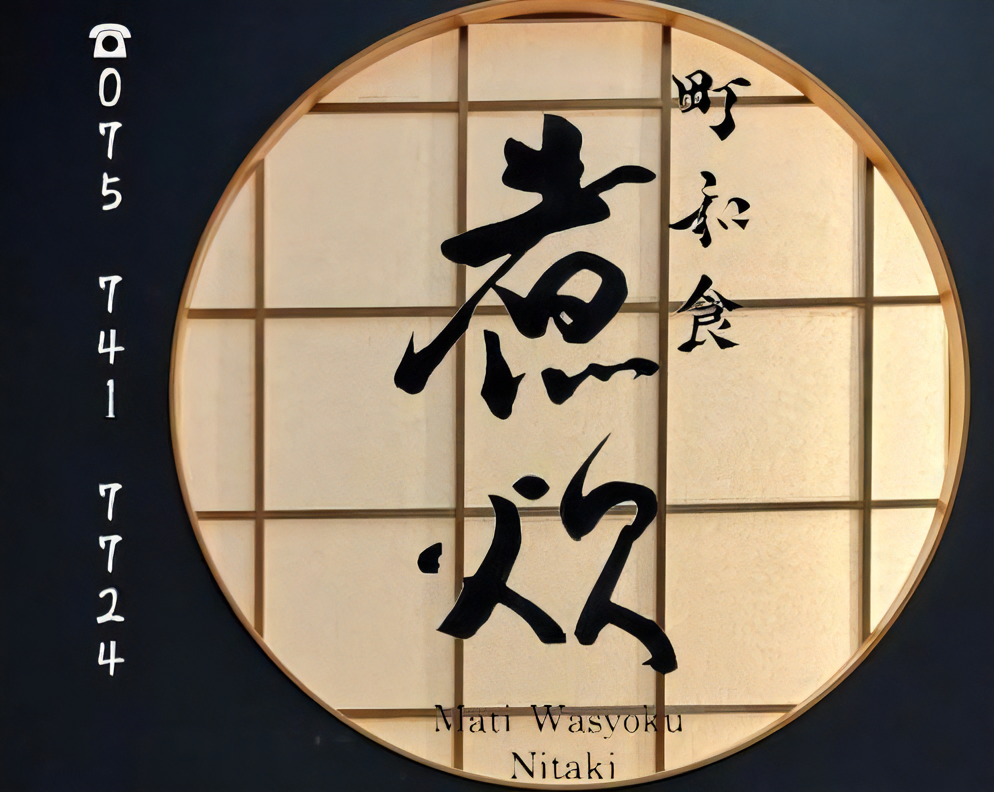 町和食
煮炊
Mati Wasyoku
Nitaki
☎075 741 7724